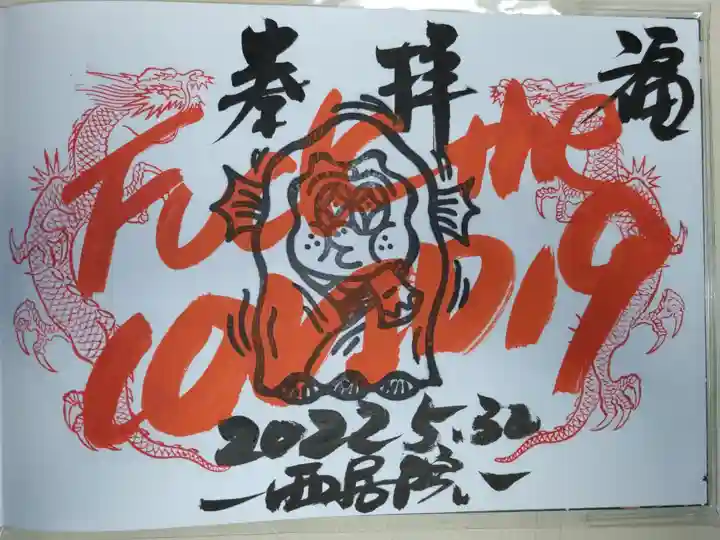 奉拝 福
Fuck the
COVID19
2022 5.30
一西居院一